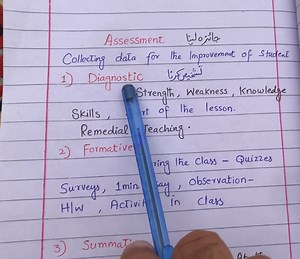 Assessment جائزہ لینا
Collecting data for the Improvement of Student
1) Diagnostic تشخیص کرنا
Strength, Weakness, Knowledge
Skills, of the lesson.
Remedial Teaching.
2) Formative
the Class - Quizzes
Surveys, 1min , Observation-
H/W , in Class
3)